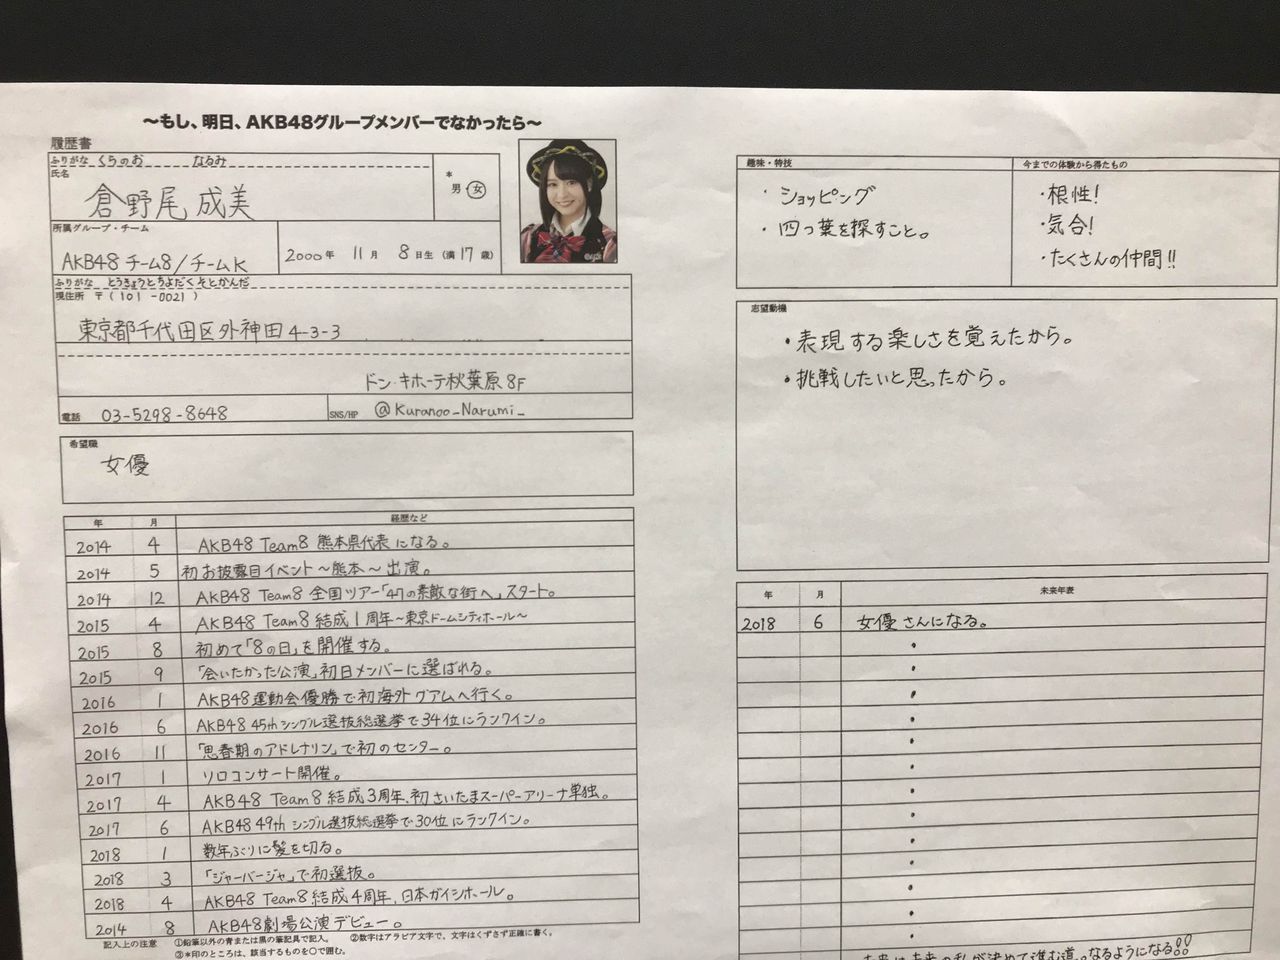 ～もし、明日、AKB48グループメンバーでなかったら～
履歴書
ふりがな くらのお なるみ
氏名
倉野尾 成美
*
男・女
所属グループ・チーム
AKB48 チーム8/チームK
2000年 11月 8日生 (満17歳)
ふりがな とうきょうとちよだくそとかんだ
現住所 〒(101-0021)
東京都千代田区外神田4-3-3
ドン・キホーテ秋葉原8F
電話 03-5298-8648
SNS/HP @Kuranoo_Narumi_
希望職
女優
年 月 経歴など
2014 4 AKB48 Team8 熊本県代表になる。
2014 5 初お披露目イベント～熊本～出演。
2014 12 AKB48 Team8 全国ツアー「47の素敵な街へ」スタート。
2015 4 AKB48 Team8 結成1周年～東京ドームシティホール～
2015 8 初めて「8の日」を開催する。
2015 9 「会いたかった公演」初日メンバーに選ばれる。
2016 1 AKB48運動会優勝で初海外グアムへ行く。
2016 6 AKB48 45thシングル選抜総選挙で34位にランクイン。
2016 11 「思春期のアドレナリン」で初のセンター。
2017 1 ソロコンサート開催。
2017 4 AKB48 Team8 結成3周年、初さいたまスーパーアリーナ単独。
2017 6 AKB48 49thシングル選抜総選挙で30位にランクイン。
2018 1 数年ぶりに髪を切る。
2018 3 「ジャーバージャ」で初選抜。
2018 4 AKB48 Team8 結成4周年、日本ガイシホール。
2014 8 AKB48劇場公演デビュー。
記入上の注意 ①鉛筆以外の青または黒の筆記具で記入。 ②数字はアラビア文字で、文字はくずさず正確に書く。
③*印のところは、該当するものを○で囲む。
趣味・特技
・ショッピング
・四つ葉を探すこと。
今までの体験から得たもの
・根性!
・気合!
・たくさんの仲間!!
志望動機
・表現する楽しさを覚えたから。
・挑戦したいと思ったから。
年 月 未来年表
2018 6 女優さんになる。
未来は未来の私が決めて進む道。なるようになる!!